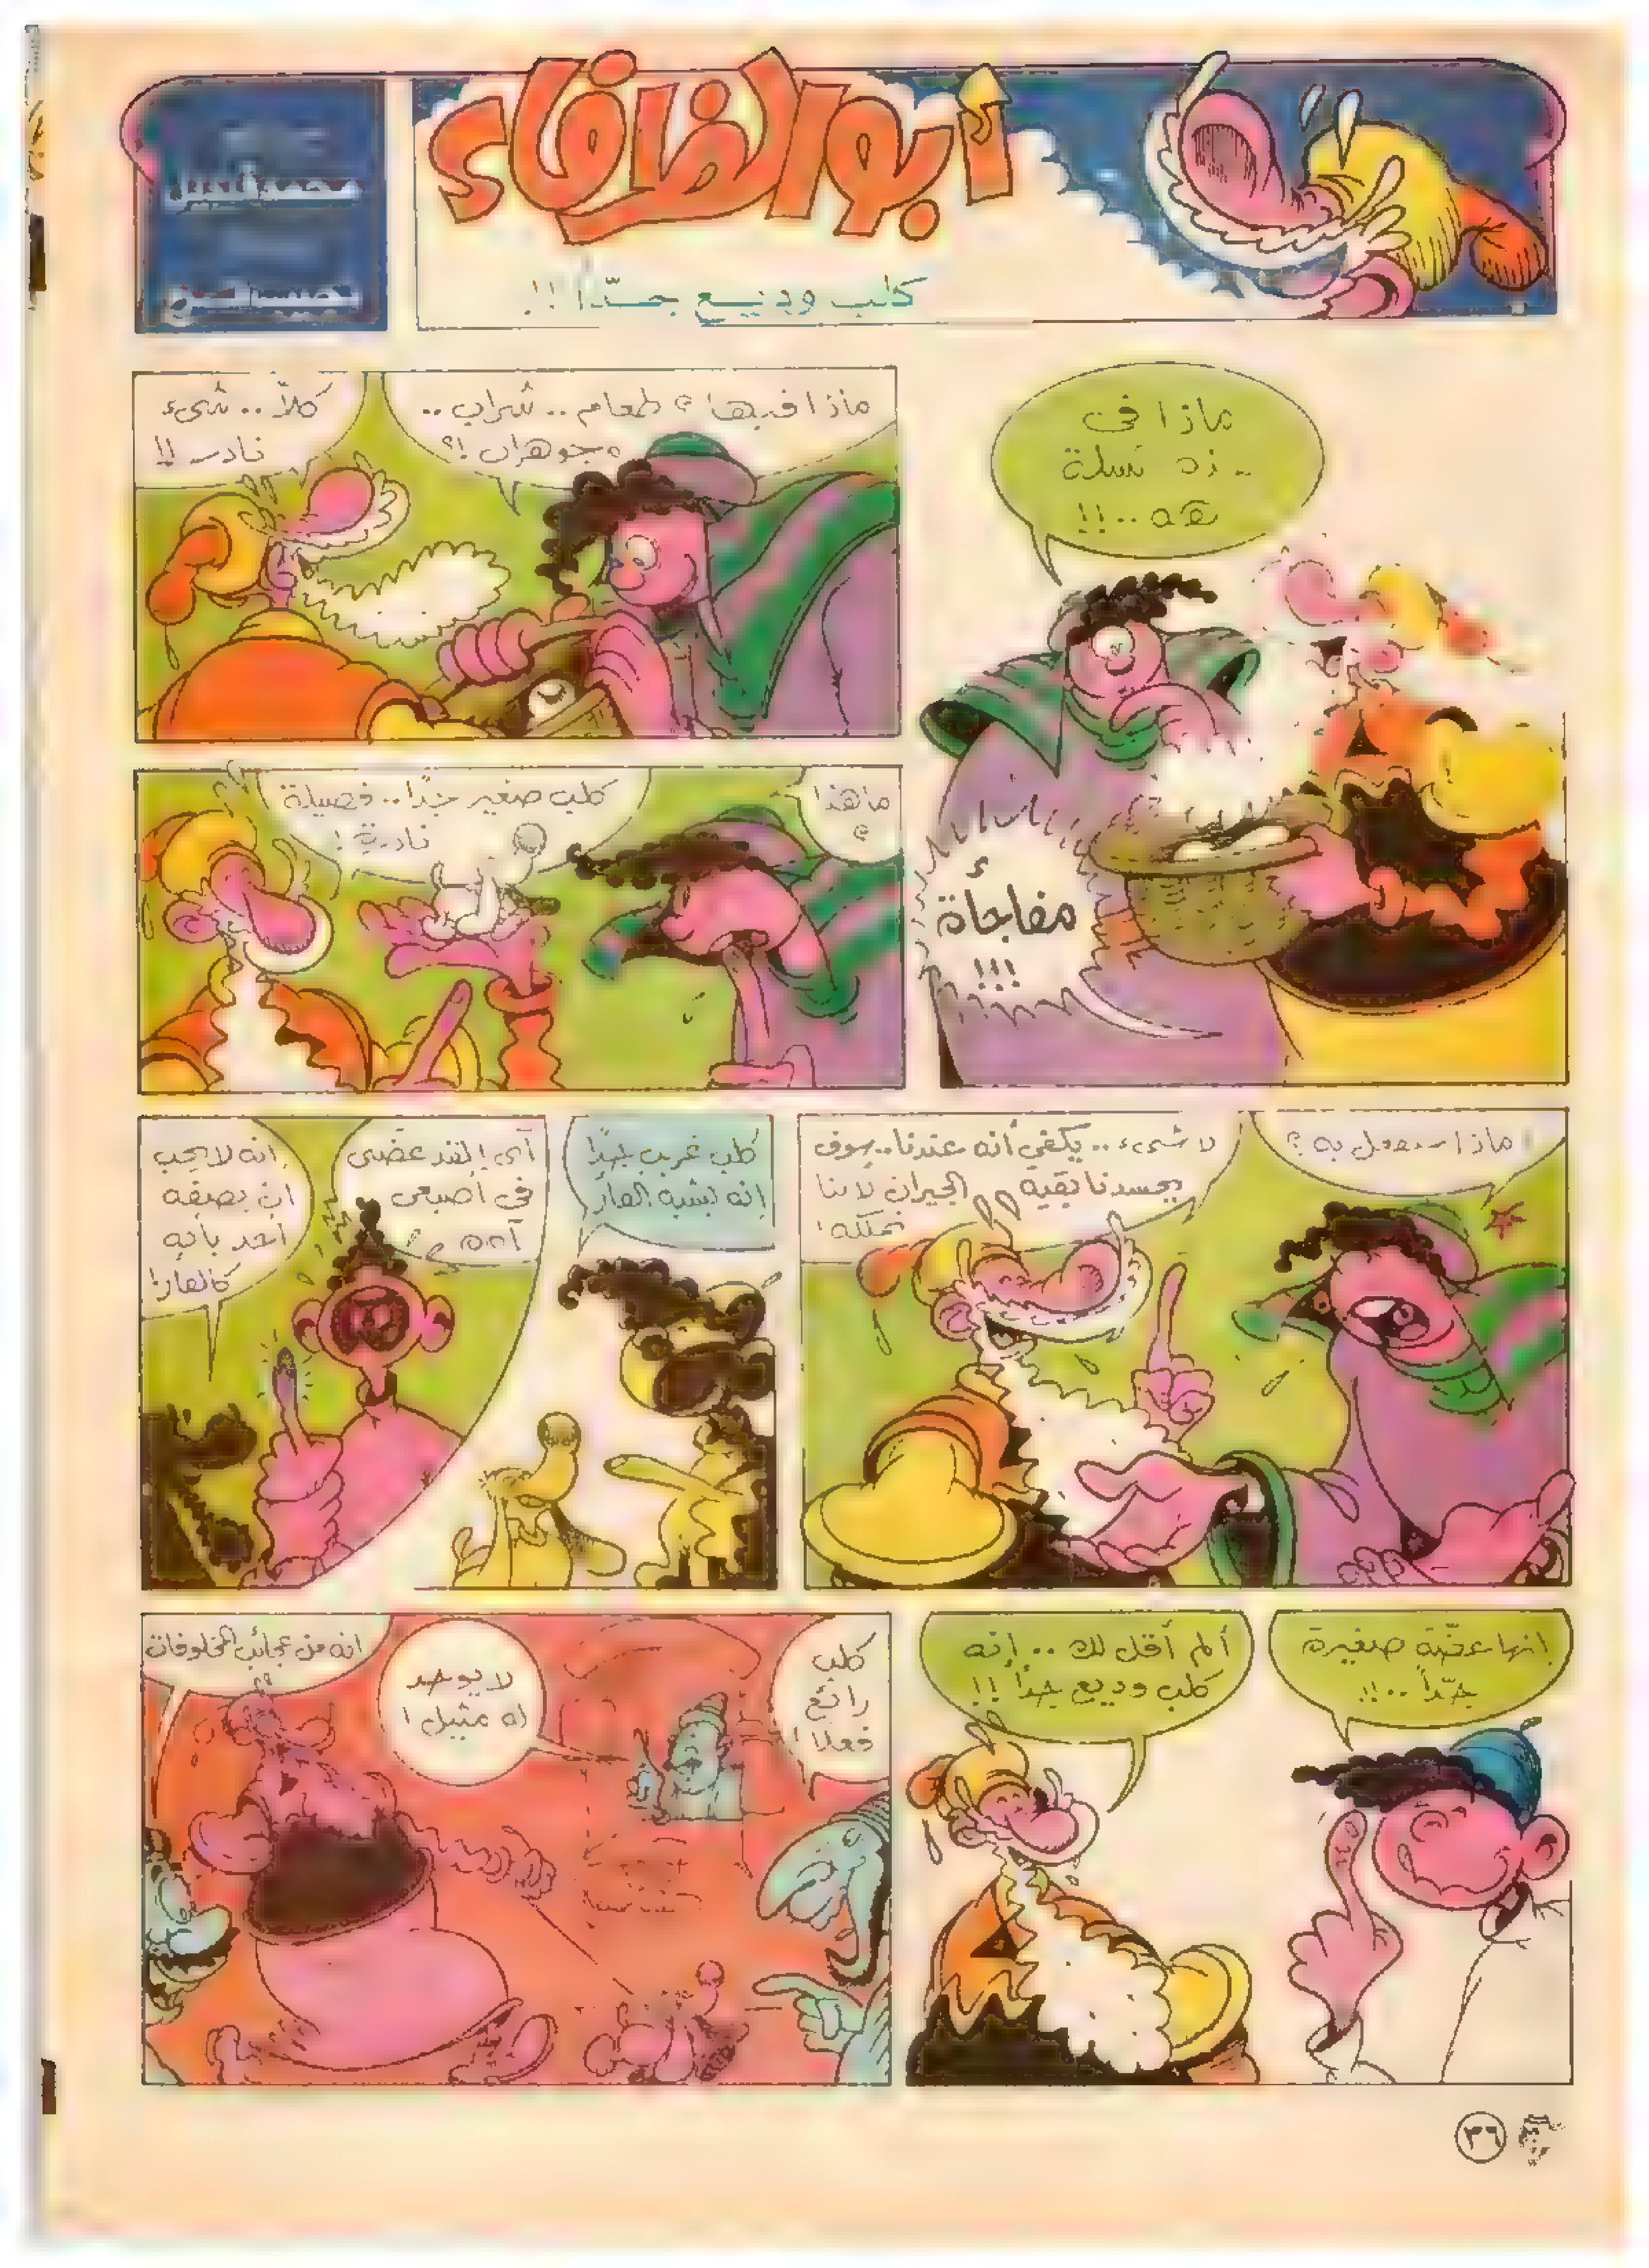 أبو الظرفاء
كلب وديع جدًا !!
ماذا فى
هذه السلة
!!..
مفاجأة
!!!
ماذا فيها ؟ طعام .. شراب ..
مجوهرات !؟
كلاّ .. شىء
نادر !!
ما هذا
؟
كلب صغير جدًا .. فصيلة
نادرة !
ماذا ستفعل به ؟
لا شىء .. يكفي أنه عندنا .. سوف
يحسدنا بقية الجيران لأننا
نملكه !
كلب غريب جدًا
إنه يشبه الفأر
آى ! لقد عضنى
فى أصبعى
آه
إنه لا يحب
ان يصفه
أحد بأنه
كالفأر !
إنها عضّة صغيرة
جدًّا ..!!
ألم أقل لك .. إنه
كلب وديع جدًا !!
كلب
رائع
فعلا !
لا يوجد
له مثيل !
انه من عجائب المخلوقات
٣٦